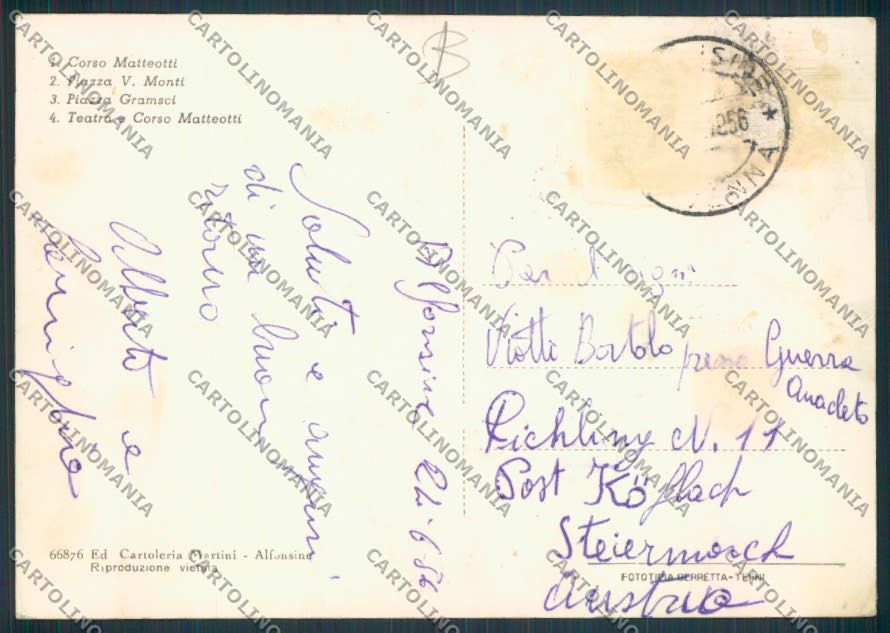 B
1. Corso Matteotti
2. Piazza V. Monti
3. Piazza Gramsci
4. Teatro e Corso Matteotti
Alfonsine 21-6-56
Saluti e auguri
di un buon
ritorno
Alberto e
1956
Per il Sign
Viotti Bortolo presso Guerra
Anacleto
Pichling N. 11
Post Köflach
Steiermarch
Austria
66876 Ed Cartoleria Martini - Alfonsine
Riproduzione vietata
FOTOTIPIA BERRETTA - TERNI
CARTOLINOMANIA